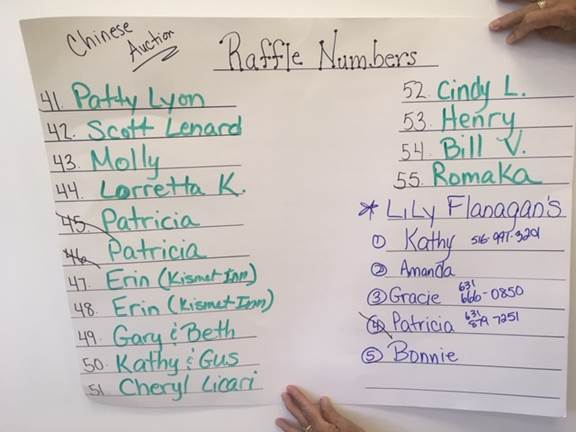 Chinese
Auction
Raffle Numbers
41. Patty Lyon
42. Scott Lenard
43. Molly
44. Lorretta K.
45. Patricia
46. Patricia
47. Erin (Kismet Inn)
48. Erin (Kismet Inn)
49. Gary & Beth
50. Kathy & Gus
51. Cheryl Licari
52. Cindy L.
53. Henry
54. Bill V.
55. Romaka
* Lily Flanagan's
① Kathy 516-991-3201
② Amanda
③ Gracie 631 666-0850
④ Patricia 631 879 7251
⑤ Bonnie